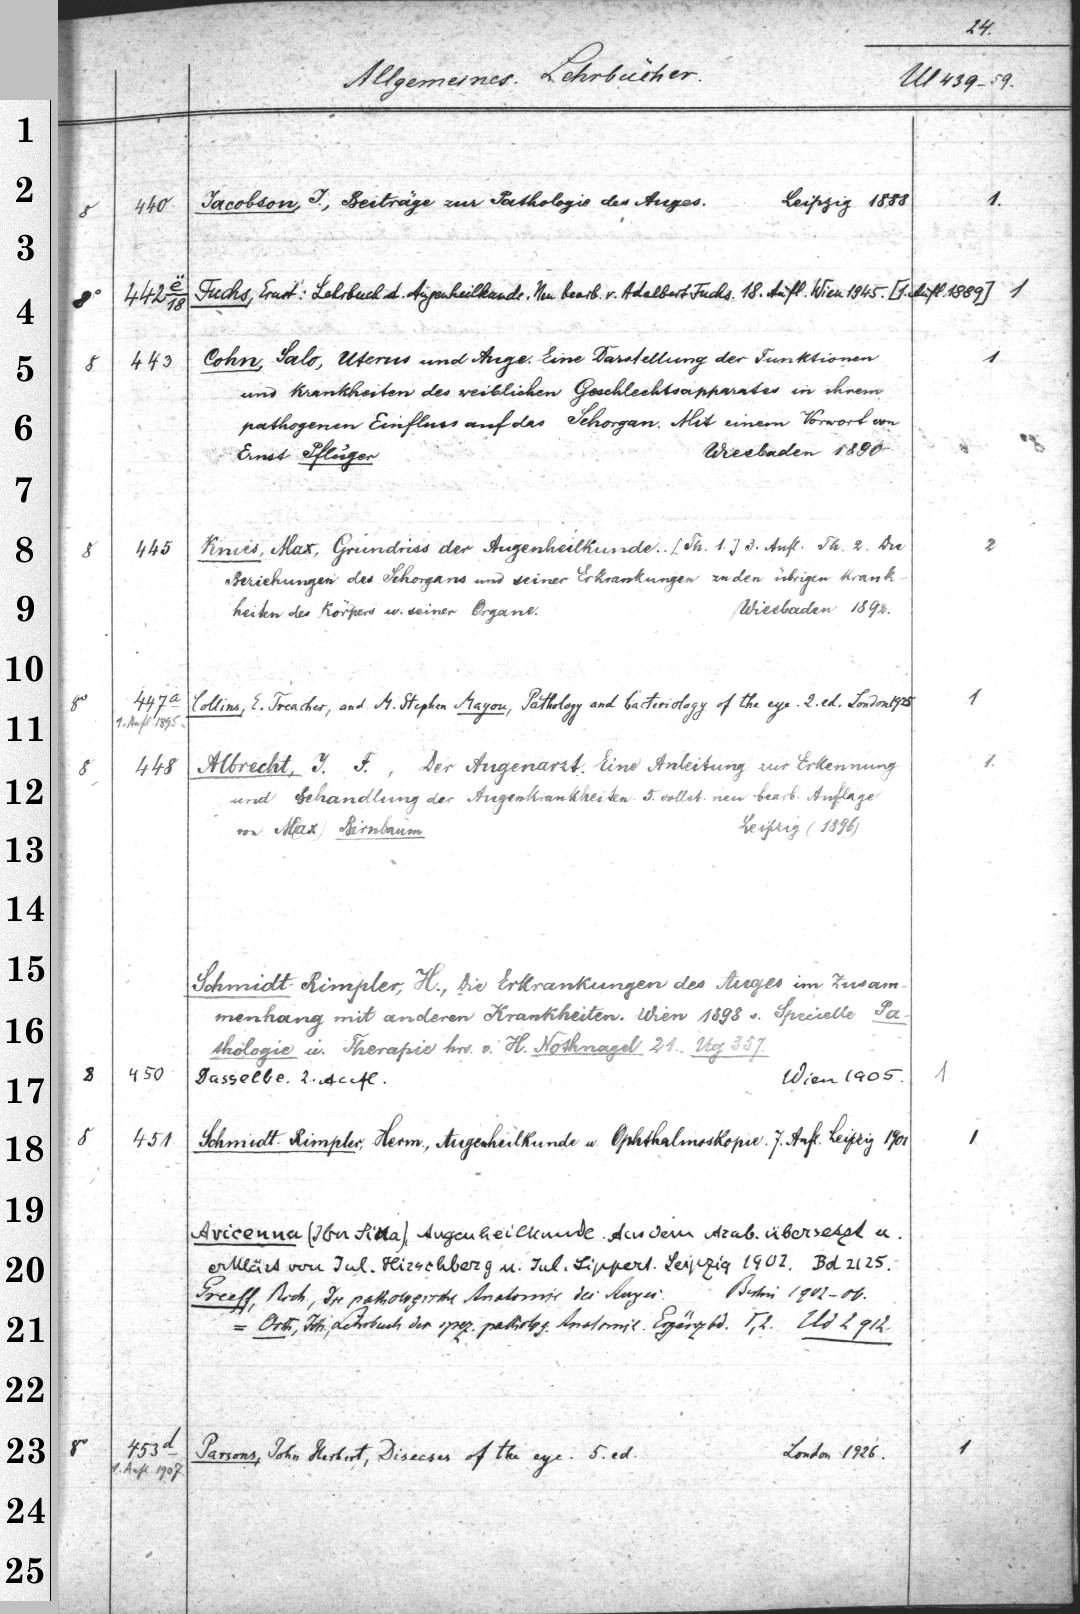 24.
Allgemeines. Lehrbücher. Ul 439-59.
1
2
8 440 Jacobson, J., Beiträge zur Pathologie des Auges. Leipzig 1888 1.
3
8° 442 ë/18 Fuchs, Ernst: Lehrbuch d. Augenheilkunde. Neu bearb. v. Adalbert Fuchs. 18. Aufl. Wien 1945. [1. Aufl. 1889] 1
4
5
8 443 Cohn, Salo, Uterus und Auge. Eine Darstellung der Funktionen 1
und Krankheiten des weiblichen Geschlechtsapparates in ihrem
6
pathogenen Einfluss auf das Sehorgan. Mit einem Vorwort von
Ernst Pflüger Wiesbaden 1890
7
8
8 445 Knies, Max, Grundriss der Augenheilkunde.. [Th. 1.] 3. Aufl. Th. 2. Die 2
Beziehungen des Sehorgans und seiner Erkrankungen zu den übrigen Krank-
9
heiten des Körpers u. seiner Organe. Wiesbaden 1892.
10
8° 447a Collins, E. Treacher, and M. Stephen Mayou, Pathology and bacteriology of the eye. 2. ed. London 1925 1
1. Aufl 1895
11
8 448 Albrecht, J. F., Der Augenarzt. Eine Anleitung zur Erkennung 1.
12
und Behandlung der Augenkrankheiten. 5. vollst. neu bearb. Auflage
von M(ax) Birnbaum Leipzig (1896)
13
14
15
Schmidt-Rimpler, H., Die Erkrankungen des Auges im Zusam-
menhang mit anderen Krankheiten. Wien 1898 s. Specielle Pa-
16
thologie u. Therapie hrs. v. H. Nothnagel 21. Utg 357.
17
8 450 Dasselbe. 2. Aufl. Wien 1905. 1
18
8 451 Schmidt-Rimpler, Herm., Augenheilkunde u Ophthalmoskopie. 7. Aufl. Leipzig 1901 1
19
Avicenna (Ibn Sina), Augenheilkunde. Aus dem Arab. übersetzt u.
20
erklärt von Jul. Hirschberg u. Jul. Lippert. Leipzig 1902. Bd 2125.
Greeff, Rich., Die pathologische Anatomie des Auges. Berlin 1902-06.
21
= Orth, Joh., Lehrbuch der spez. patholog. Anatomie. Ergänzbd. T, 2. Ud 2 912
22
23
8° 453d Parsons, John Herbert, Diseases of the eye. 5. ed. London 1926. 1
1. Aufl 1907
24
25